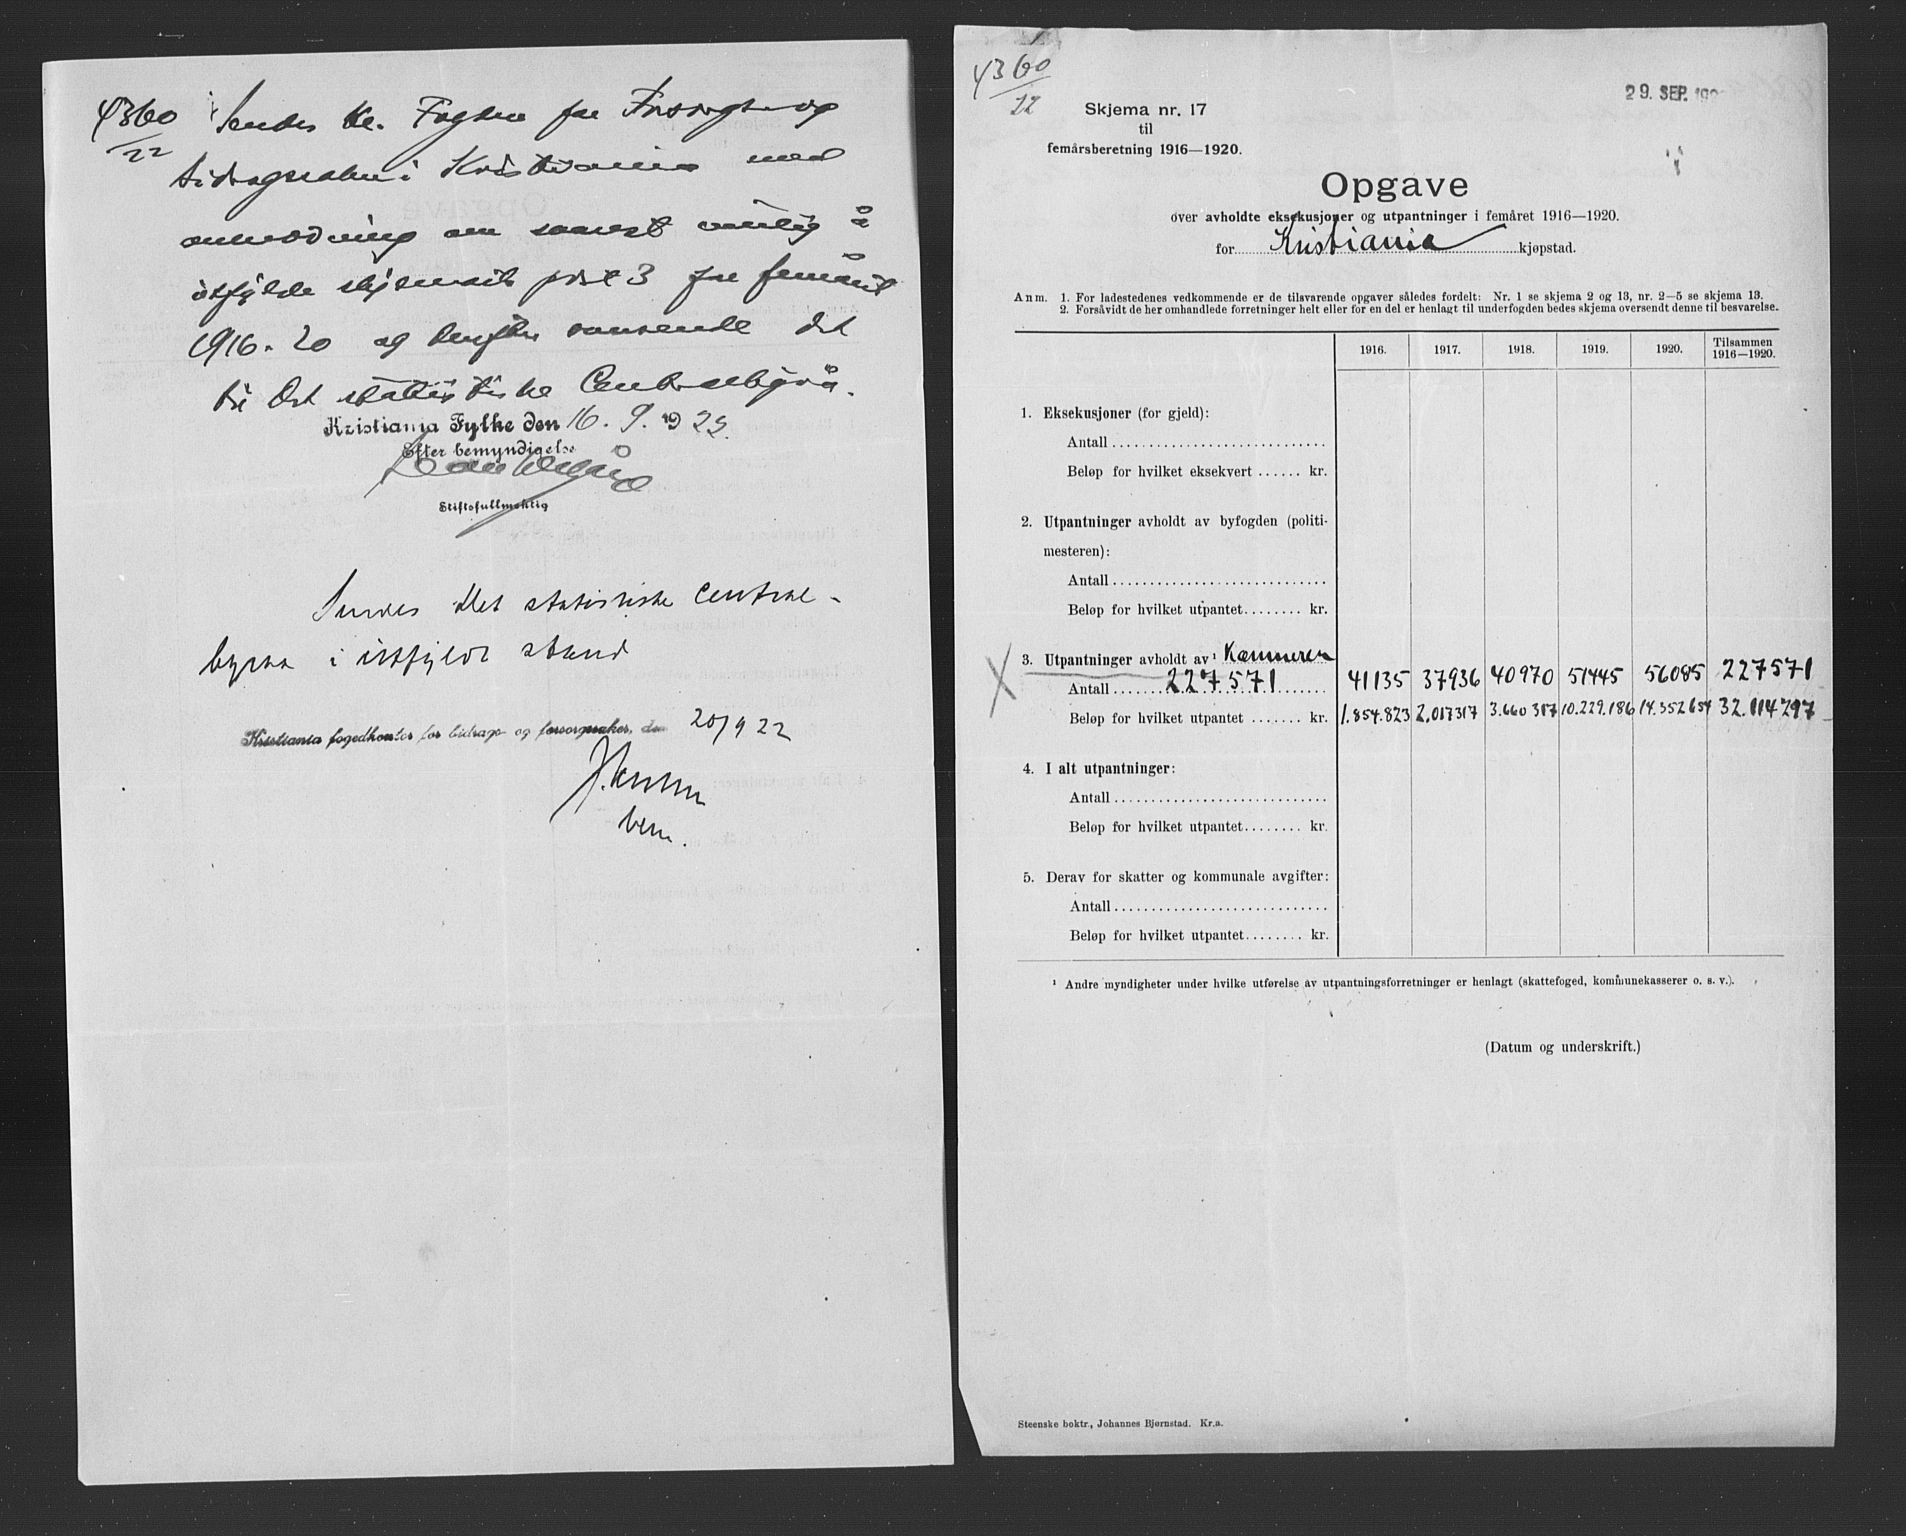 4360
22
Sendes Hr. Fogden for Forsorgs- og
bidragssaker i Kristiania med
anmodning om snarest vennlig å
utfylde skjemaets post 3 for femåret
1916-20 og derefter oversende det
til Det statistiske Centralbyrå.
Kristiania Fylke den 16. 9. 1922.
Efter bemyndigelse
Stiftsfullmektig
Sendes det statistiske central-
byraa i utfyldt stand
Kristiania fogedkontor for bidrags- og forsorgssaker, den 20/9 22
bem.
4360
22
29. SEP. 192
Skjema nr. 17
til
femårsberetning 1916—1920.
Opgave
over avholdte eksekusjoner og utpantninger i femåret 1916—1920.
for Kristiania kjøpstad.
Anm. 1. For ladestedenes vedkommende er de tilsvarende opgaver således fordelt: Nr. 1 se skjema 2 og 13, nr. 2—5 se skjema 13.
2. Forsåvidt de her omhandlede forretninger helt eller for en del er henlagt til underfogden bedes skjema oversendt denne til besvarelse.
1916. 1917. 1918. 1919. 1920. Tilsammen 1916—1920.
1. Eksekusjoner (for gjeld):
Antall
Beløp for hvilket eksekvert ...... kr.
2. Utpantninger avholdt av byfogden (politi-
mesteren):
Antall
Beløp for hvilket utpantet ........ kr.
3. Utpantninger avholdt av¹ Kæmneren
Antall 227571 41135 37936 40970 51445 56085 227571
Beløp for hvilket utpantet ....... kr. 1.854.823 2.017317 3.660317 10.229.186 14.352654 32.114297
4. I alt utpantninger:
Antall
Beløp for hvilket utpantet ........ kr.
5. Derav for skatter og kommunale avgifter:
Antall
Beløp for hvilket utpantet ........ kr.
¹ Andre myndigheter under hvilke utførelse av utpantningsforretninger er henlagt (skattefoged, kommunekasserer o. s. v.).
(Datum og underskrift.)
Steenske boktr., Johannes Bjørnstad. Kr.a.